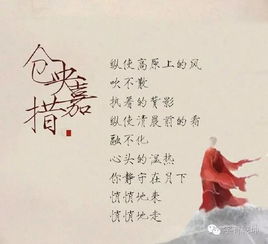 仓央嘉措
纵使高原上的风
吹不散
执着的背影
纵使清晨前的看
融不化
心头的温热
你静守在月下
悄悄地来
悄悄地走